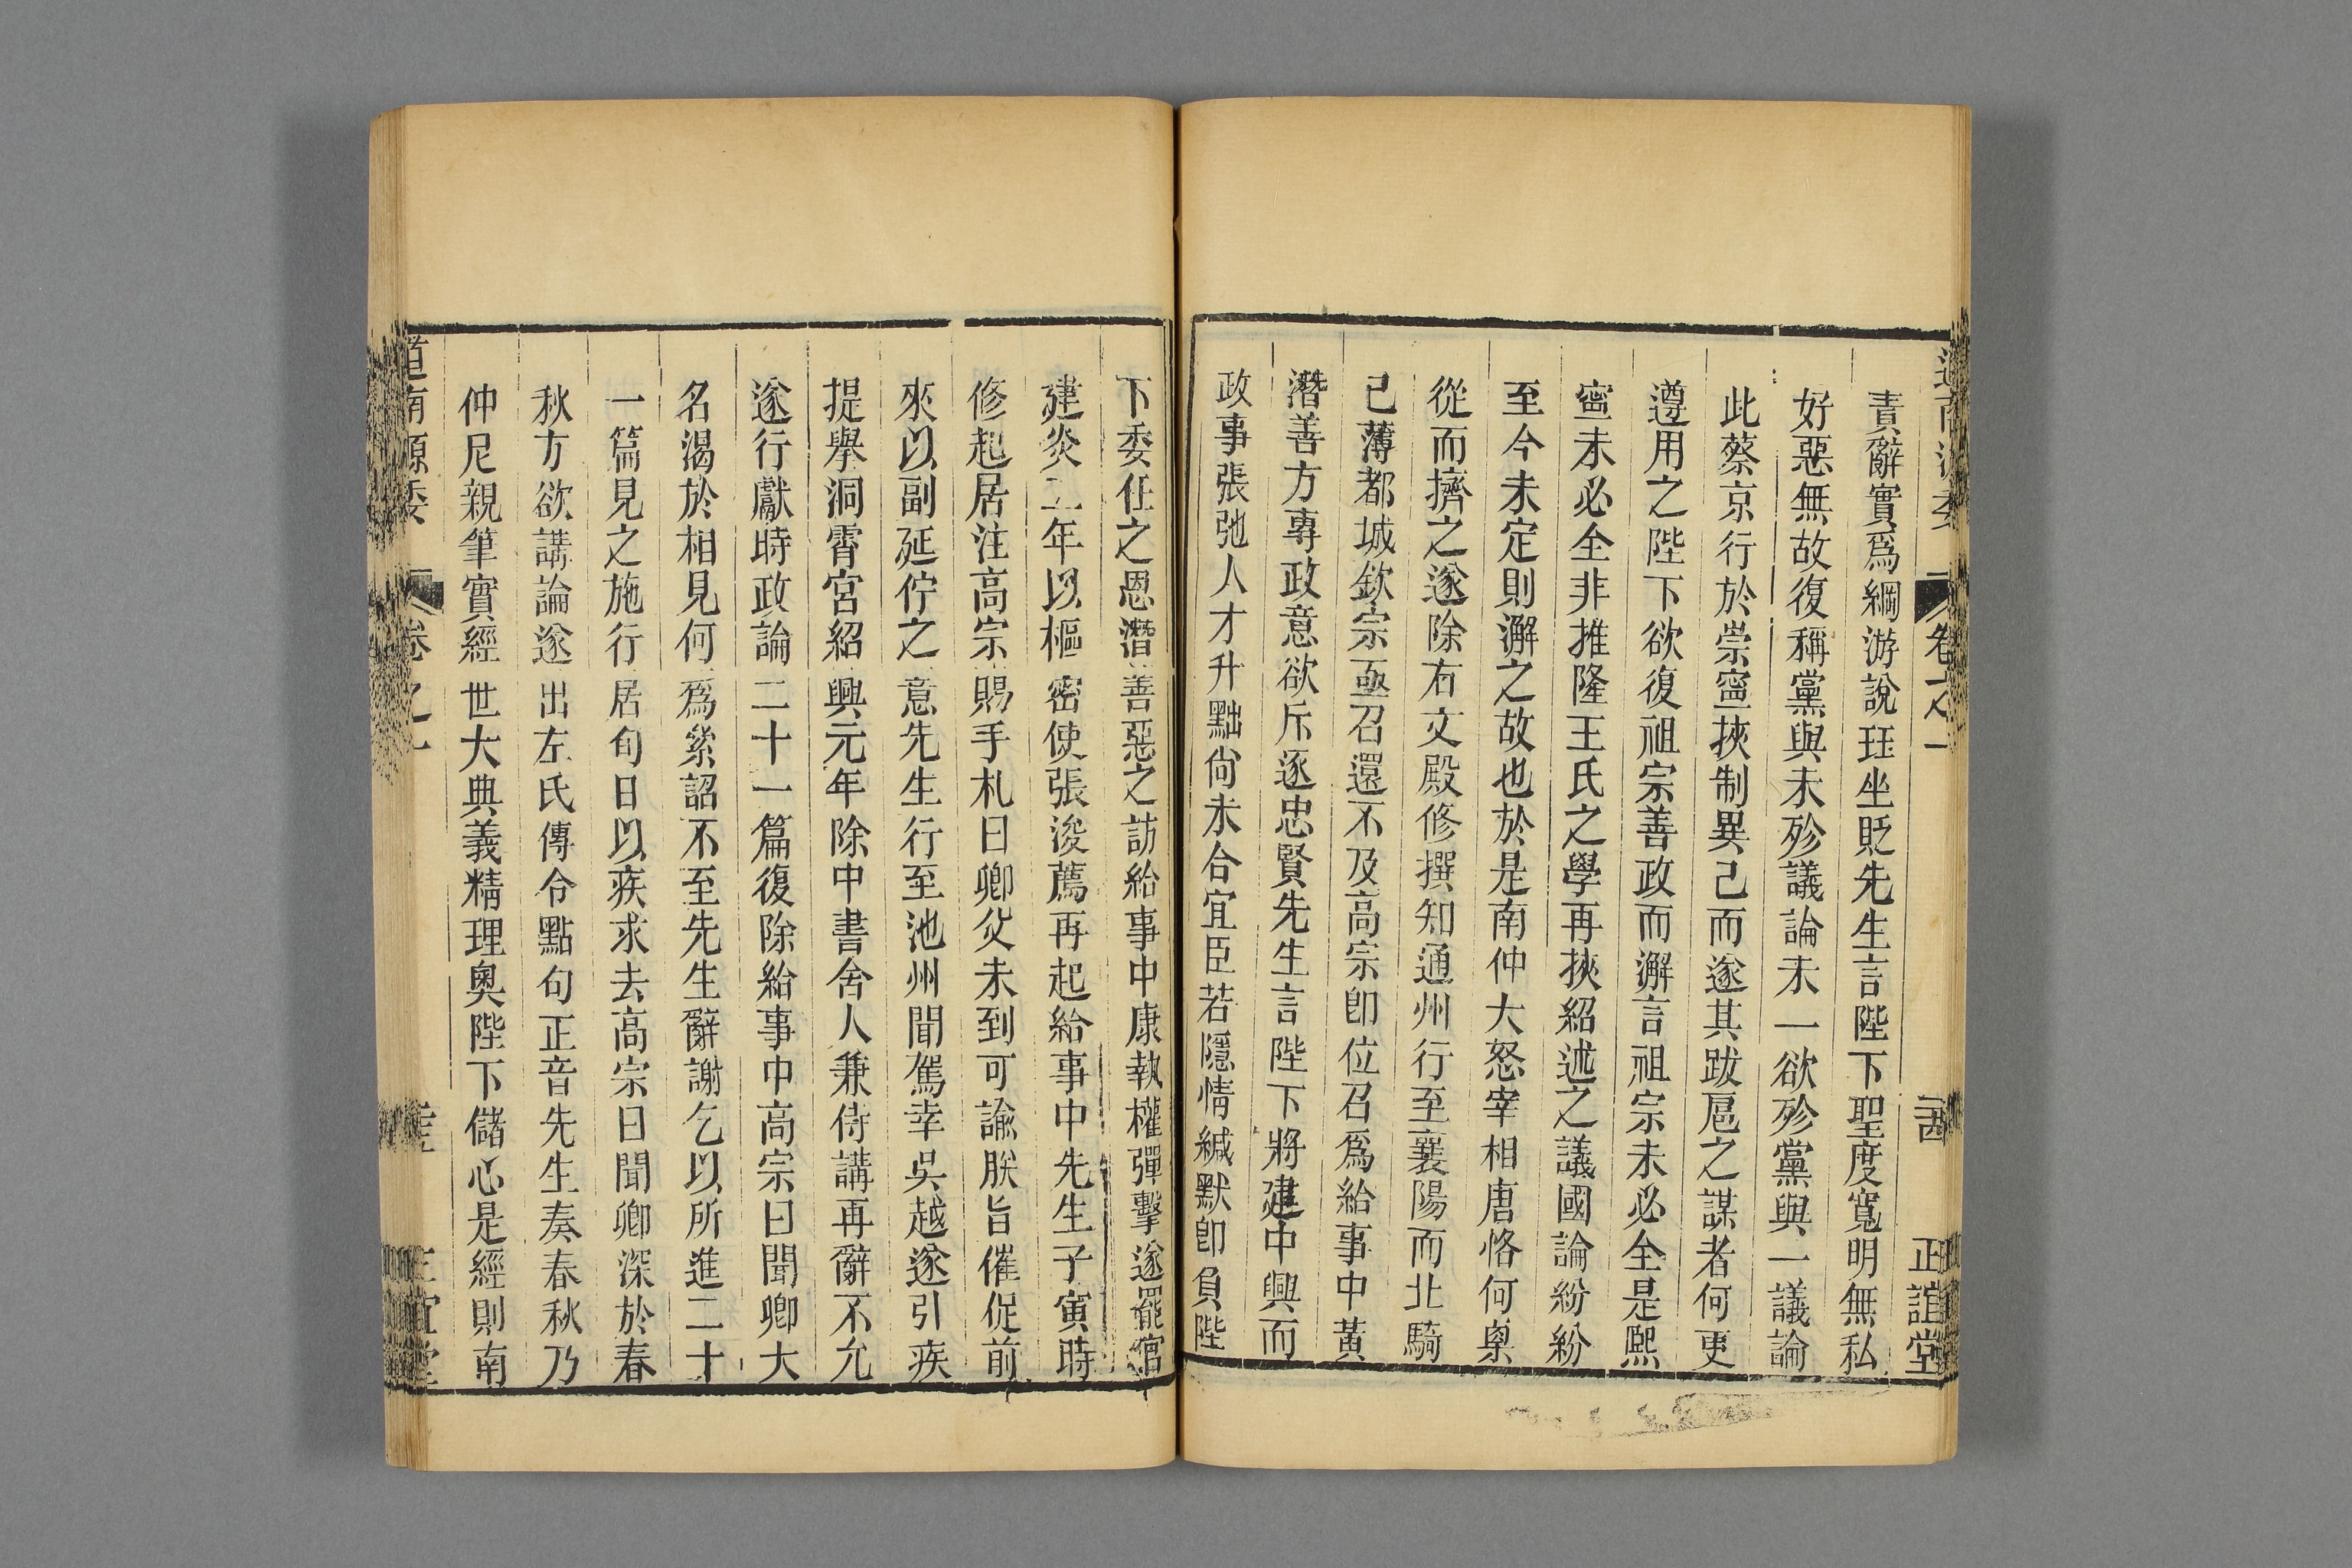 道南源委
卷之一
二四
正誼堂
責辭實爲綱游說珏坐貶先生言陛下聖度寬明無私
好惡無故復稱黨與未殄議論未一欲殄黨與一議論
此蔡京行於崇寧挾制異己而遂其跋扈之謀者何更
遵用之陛下欲復祖宗善政而澥言祖宗未必全是熙
寧未必全非推隆王氏之學再挾紹述之議國論紛紛
至今未定則澥之故也於是南仲大怒宰相唐恪何㮚
從而擠之遂除右文殿修撰知通州行至襄陽而北騎
已薄都城欽宗亟召還不及高宗卽位召爲給事中黃
潛善方專政意欲斥逐忠賢先生言陛下將建中興而
政事張弛人才升黜尙未合宜臣若隱情緘默卽負陛
下委任之恩潛善惡之訪給事中康執權彈擊遂罷官
建炎二年以樞密使張浚薦再起給事中先生子寅時
修起居注高宗賜手札曰卿父未到可諭朕旨催促前
來以副延佇之意先生行至池州聞駕幸吳越遂引疾
提舉洞霄宮紹興元年除中書舍人兼侍講再辭不允
遂行獻時政論二十一篇復除給事中高宗曰聞卿大
名渴於相見何爲絫詔不至先生辭謝乞以所進二十
一篇見之施行居旬日以疾求去高宗曰聞卿深於春
秋方欲講論遂出左氏傳令點句正音先生奏春秋乃
仲尼親筆實經世大典義精理奧陛下儲心是經則南
道南源委
卷之一
正誼堂